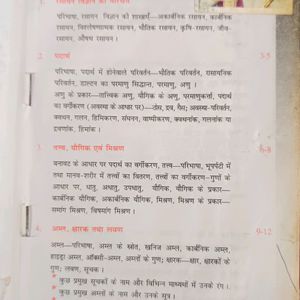 रसायन विज्ञान का परिचय
परिभाषा, रसायन विज्ञान की शाखाएँ—अकार्बनिक रसायन, कार्बनिक
रसायन, विश्लेषणात्मक रसायन, भौतिक रसायन, कृषि-रसायन, जीव-
रसायन, औषध रसायन।
2. पदार्थ 3-5
परिभाषा, पदार्थ में होनेवाले परिवर्तन—भौतिक परिवर्तन, रासायनिक
परिवर्तन, डाल्टन का परमाणु सिद्धान्त, परमाणु, अणु।
अणु के प्रकार—तात्त्विक अणु, यौगिक के अणु, परमाणुकर्ता, पदार्थ
का वर्गीकरण (अवस्था के आधार पर)—ठोस, द्रव, गैस; अवस्था-परिवर्तन,
क्वथन, गलन, हिमीकरण, संघनन, वाष्पीकरण, क्वथनांक, गलनांक या
द्रवणांक, हिमांक।
3. तत्त्व, यौगिक एवं मिश्रण 6-8
बनावट के आधार पर पदार्थ का वर्गीकरण, तत्त्व—परिभाषा, भूपर्पटी में
तथा मानव-शरीर में तत्त्वों का वितरण, तत्त्वों का वर्गीकरण—गुणों के
आधार पर, धातु, अधातु, उपधातु, यौगिक, यौगिक के प्रकार—
कार्बनिक यौगिक, अकार्बनिक यौगिक, मिश्रण, मिश्रण के प्रकार—
समांग मिश्रण, विषमांग मिश्रण।
4. अम्ल, क्षारक तथा लवण 9-12
अम्ल—परिभाषा, अम्ल के स्रोत, खनिज अम्ल, कार्बनिक अम्ल,
हाइड्रा अम्ल, ऑक्सी-अम्ल, अम्लों के गुण; क्षारक—क्षार, क्षारकों के
गुण; लवण, सूचक।
• कुछ प्रमुख सूचकों के नाम और विभिन्न माध्यमों में उनके रंग।
• कुछ प्रमुख अम्लों के नाम और उनके सूत्र।